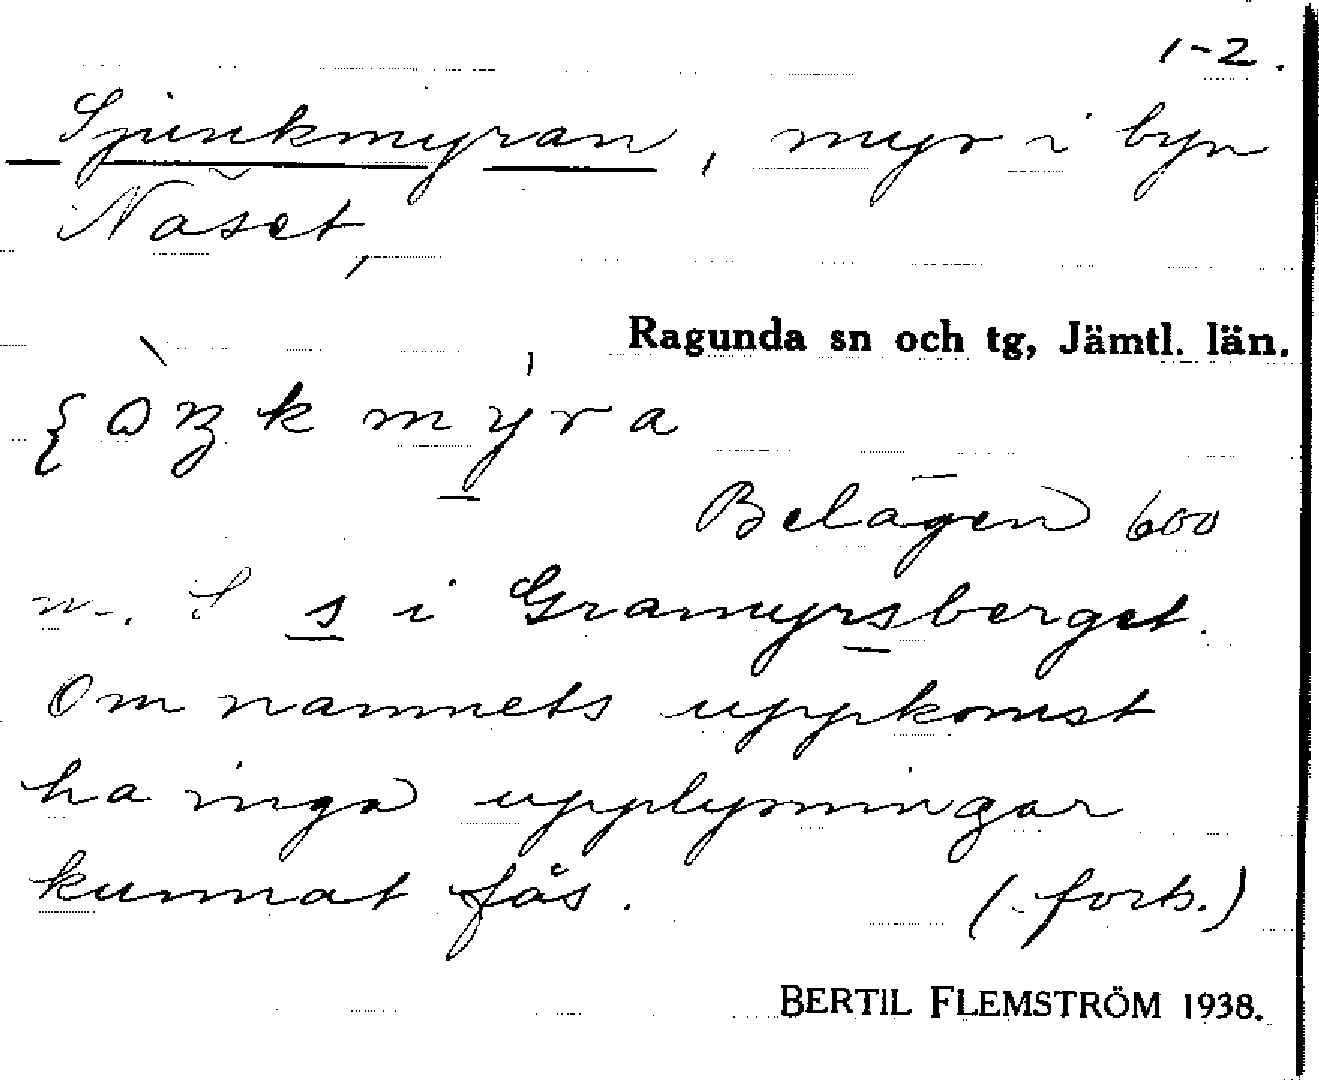 1-2.
Sjunkmyran, myr i byn
Näset,
Ragunda sn och tg, Jämtl. län.
Belägen 600
m. S s i Granmyrsberget.
Om namnets uppkomst
ha inga upplysningar
kunnat fås. (forts.)
BERTIL FLEMSTRÖM 1938.